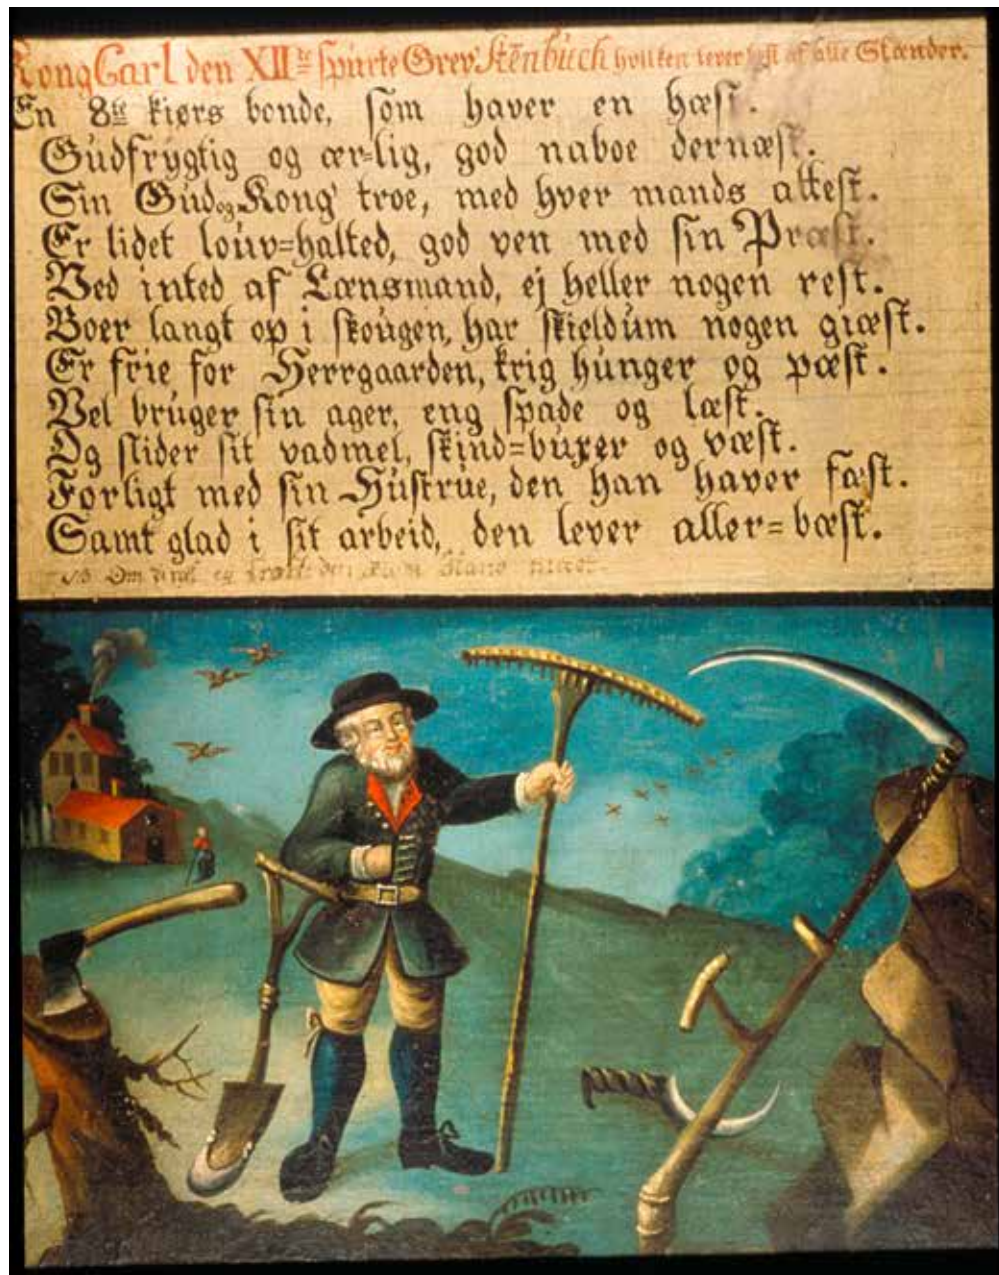 Kong Carl den XII te spurte Grev Stenbuch hvilken lever best af alle Stænder.
En 8te kiørs bonde, som haver en hæst.
Gudfrygtig og ær=lig, god naboe dernæst.
Sin Gud og Kong' troe, med hver mands attest.
Er lidet louv=halted, god ven med sin Præst.
Ved inted af Lænsmand, ej heller nogen rest.
Boer langt op i skougen, har skieldum nogen giæst.
Er frie for Herrgaarden, krig hunger og pæst.
Vel bruger sin ager, eng spade og læst.
Og slider sit vadmel, skind=buxer og væst.
Forligt med sin Hustrue, den han haver fæst.
Samt glad i sit arbeid, den lever aller=bæst.
NB Om